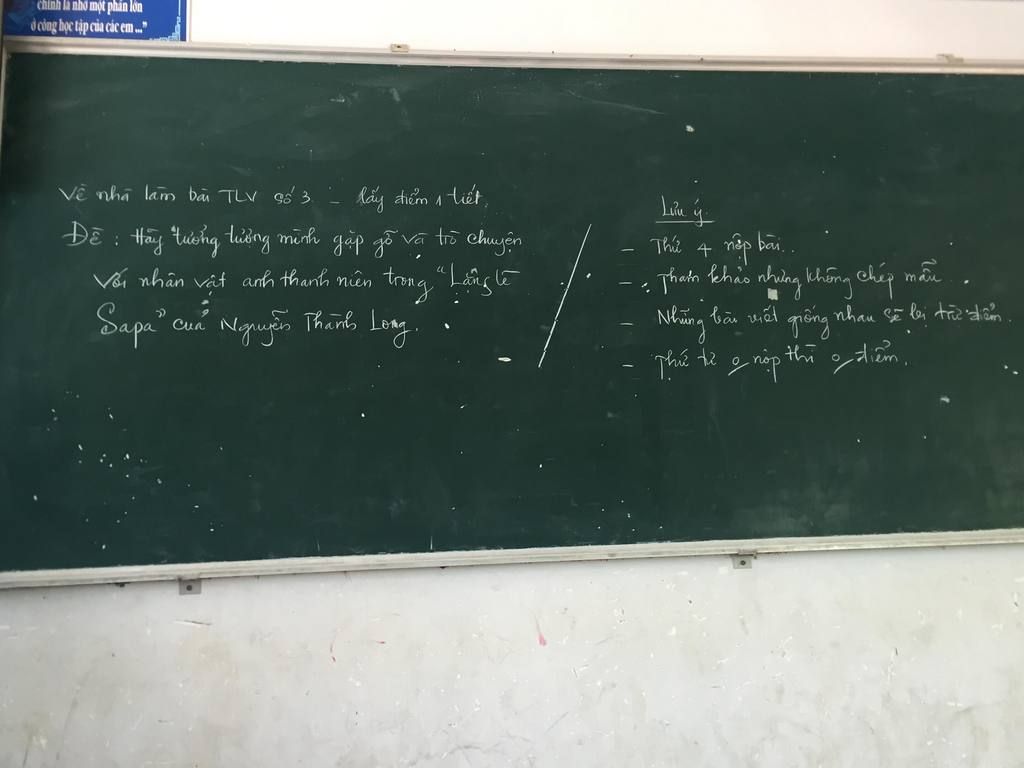 chính là nhờ một phần lớn
ở công học tập của các em ..."
Về nhà làm bài TLV số 3 - lấy điểm 1 tiết.
Đề : Hãy tưởng tượng mình gặp gỡ và trò chuyện
với nhân vật anh thanh niên trong "Lặng lẽ
Sapa" của Nguyễn Thành Long.
Lưu ý
- Thứ 4 nộp bài.
- Tham khảo nhưng không chép mẫu.
- Những bài viết giống nhau sẽ bị trừ điểm.
- Thứ tư o nộp thì o điểm.